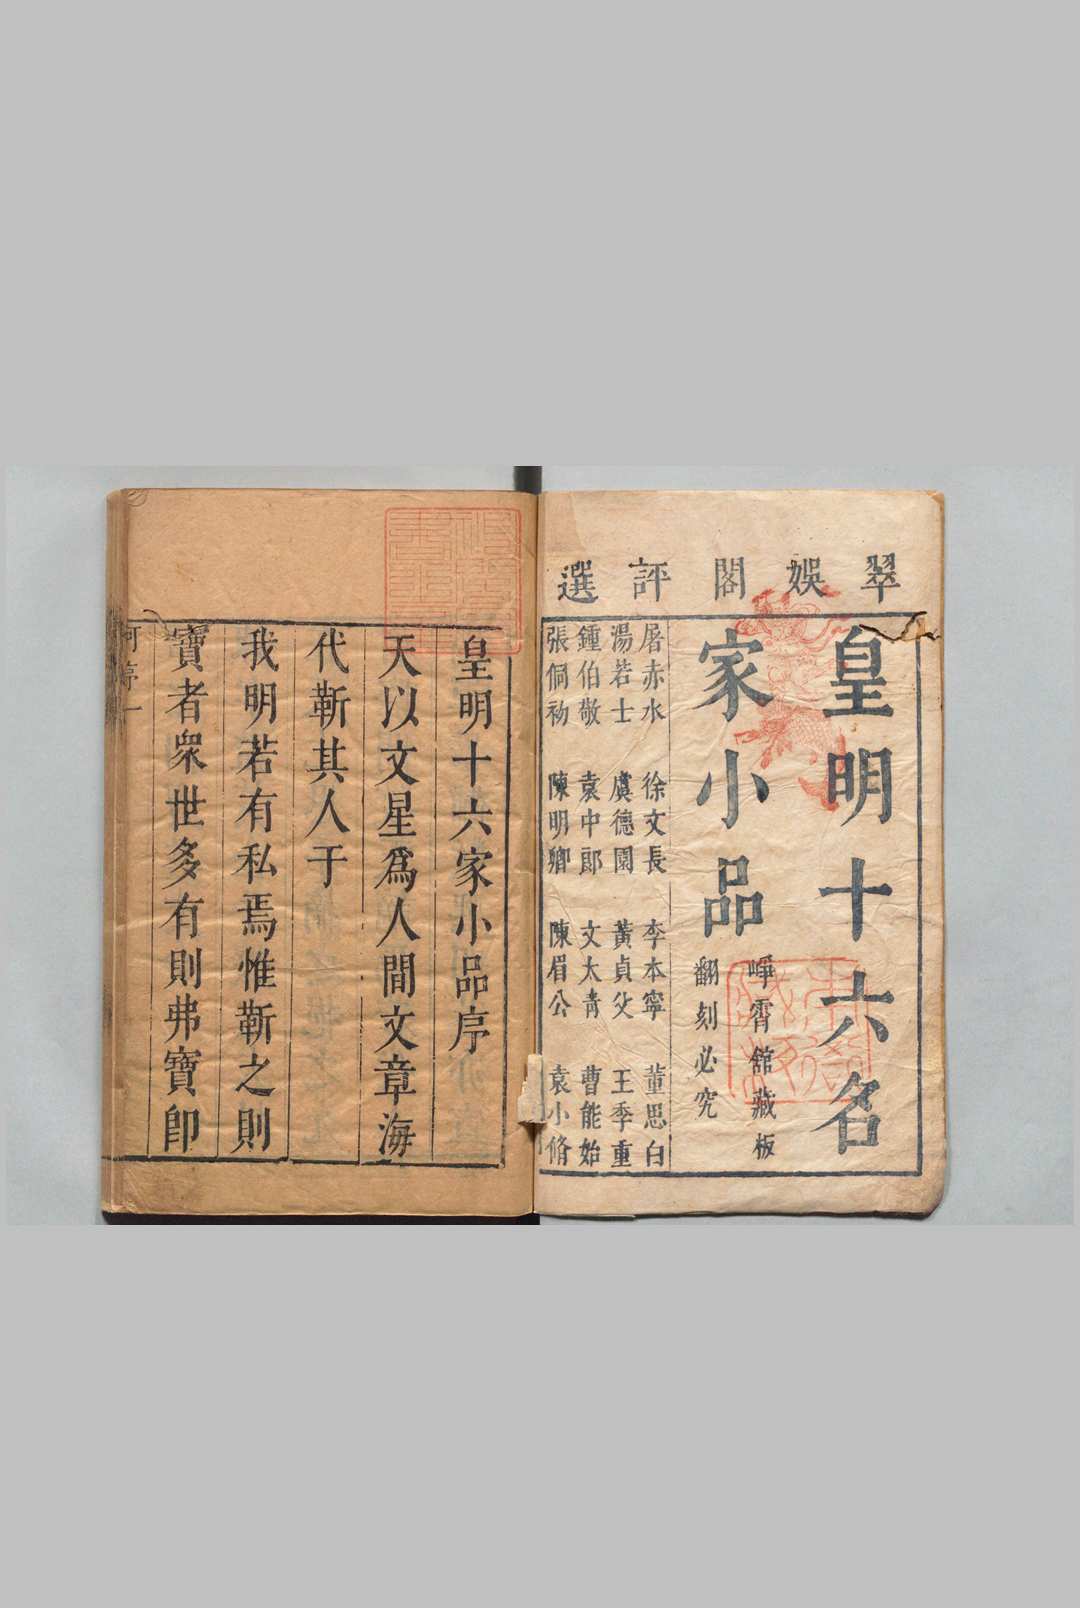 翠娛閣評選
皇明十六名
家小品
崢霄館藏板
翻刻必究
屠赤水 徐文長 李本寧 董思白
湯若士 虞德園 黃貞父 王季重
鍾伯敬 袁中郎 文太青 曹能始
張侗初 陳明卿 陳眉公 袁小脩
皇明十六家小品序
天以文星爲人間文章海
代靳其人于
我明若有私焉惟靳之則
寶者衆世多有則弗寶卽